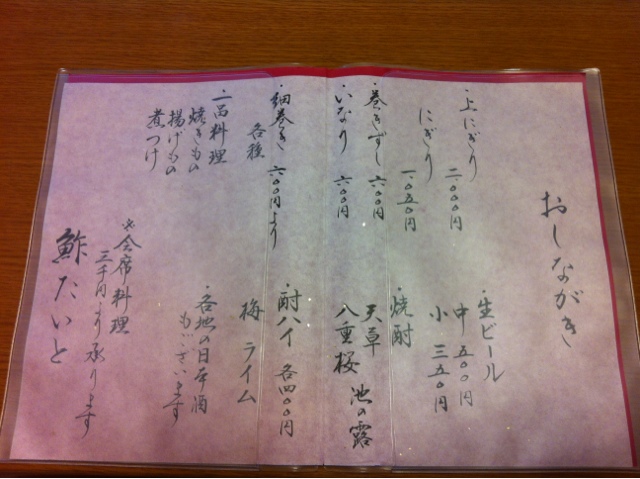 おしながき
・上にぎり 二〇〇〇円
にぎり 一〇五〇円
・巻きずし 六〇〇円
・いなり 六〇〇円
・細巻き 六〇〇円より
各種
・一品料理
焼きもの
揚げもの
煮つけ
・生ビール
中 五〇〇円
小 三五〇円
・焼酎
天草 池の露
八重桜
・酎ハイ 各四〇〇円
梅 ライム
・各地の日本酒
もございます
※会席料理
三千円より承ります
鮓たいと